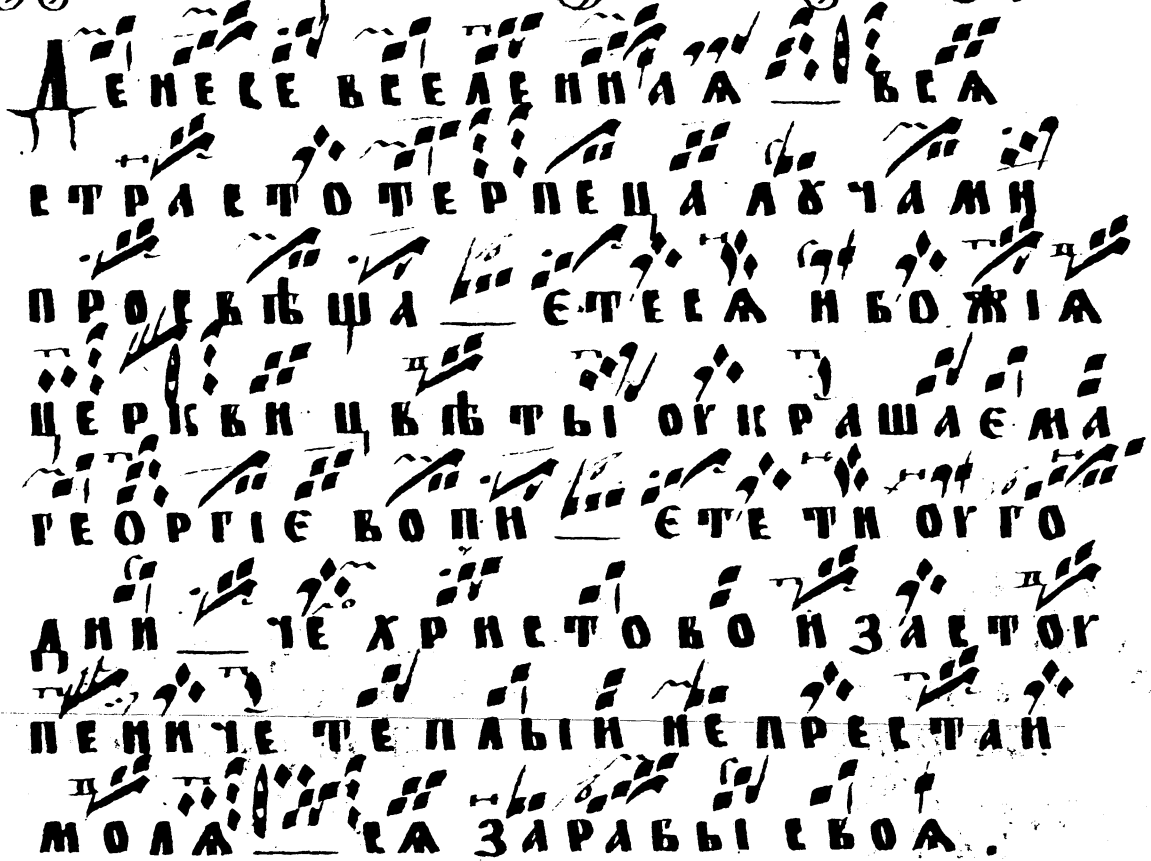 Денесе вселеннаѧ всѧ
страстотерпеца лꙋчами
просвѣща єтесѧ и божїѧ
церкви цвѣты оукрашаєма
Георгїє вопи єте ти оуго
дни че христово и застоу
пениче теплыи не престаи
молѧ сѧ за рабы своѧ.